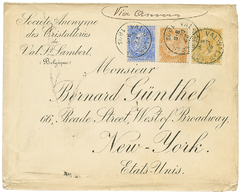 Via Anvers
Société Anonyme
des Cristalleries
du
Val St. Lambert.
(Belgique)
Monsieur
Bernard Günthel
66, Reade Street, West of Broadway
New-York.
Etats-Unis.